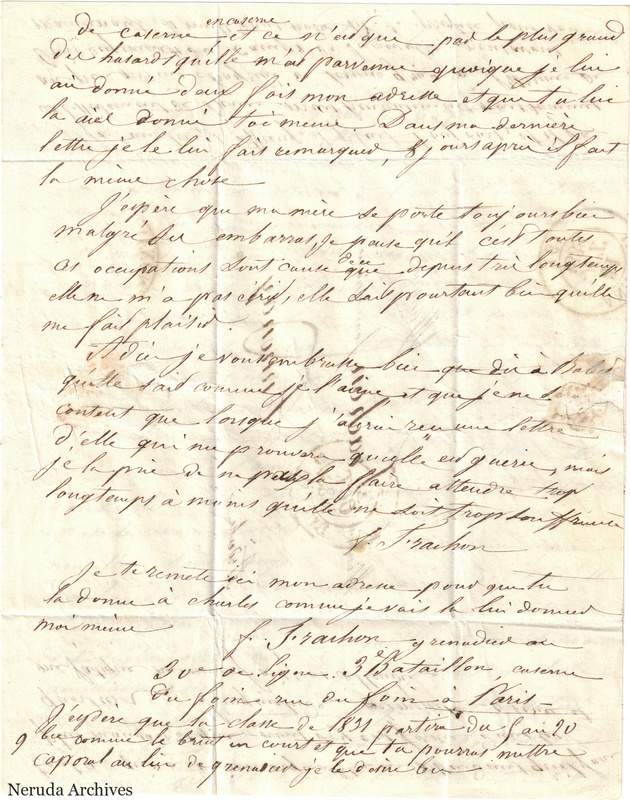 encaserné
de caserne et ce n'est que par le plus grand
des hasards qu'elle m'est parvenue quoique je lui
ai donné deux fois mon adresse et que tu lui
la aies donné toi meme. Dans ma dernière
lettre je le lui fais remarquer, 8 jours apres il fait
la même chose
J'espère que ma mère se porte toujours bien
malgré ses embarras, je pense qu'il c'est toutes
ces occupations sont cause que depuis très longtemps
elle ne m'a pas écrit, elle sait pourtant bien qu'elle
me fait plaisir.
Adieu je vous embrasse bien que dis à
qu'elle sait comme je l'aime et que je ne
content que lorsque j'aurai reçu une lettre
d'elle qui me prouvera qu'elle est guerie, mais
je la prie de ne pas la faire attendre trop
longtemps à moins qu'elle ne soit trop souffrante
f. Frachon
Je te remets ici mon adresse pour que tu
la donne à charles comme je vais la lui donner
moi meme
f. Frachon grenadier au
30e de ligne. 3e Bataillon, caserne
du foin rue du foin à Paris
J'espère que la classe de 1831 partira du 5 au 20
9 comme le bruit en court et que tu pourras mettre
caporal au lieu de grenadier je le désire bien
Neruda Archives